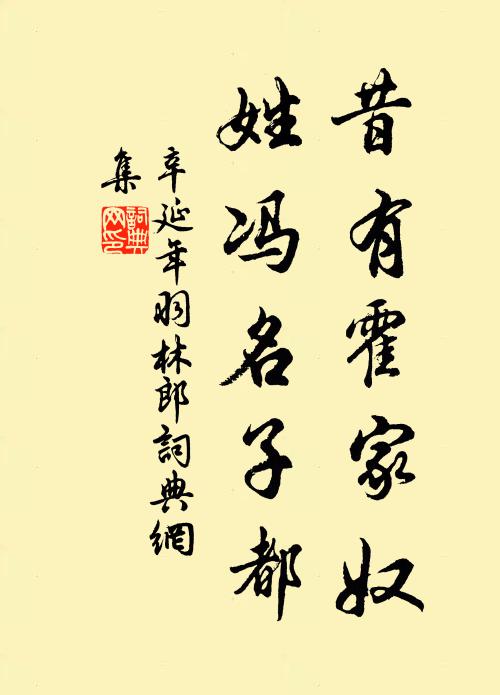 昔有霍家奴
姓冯名子都
辛延年羽林郎詞典網
集
詞典
网印